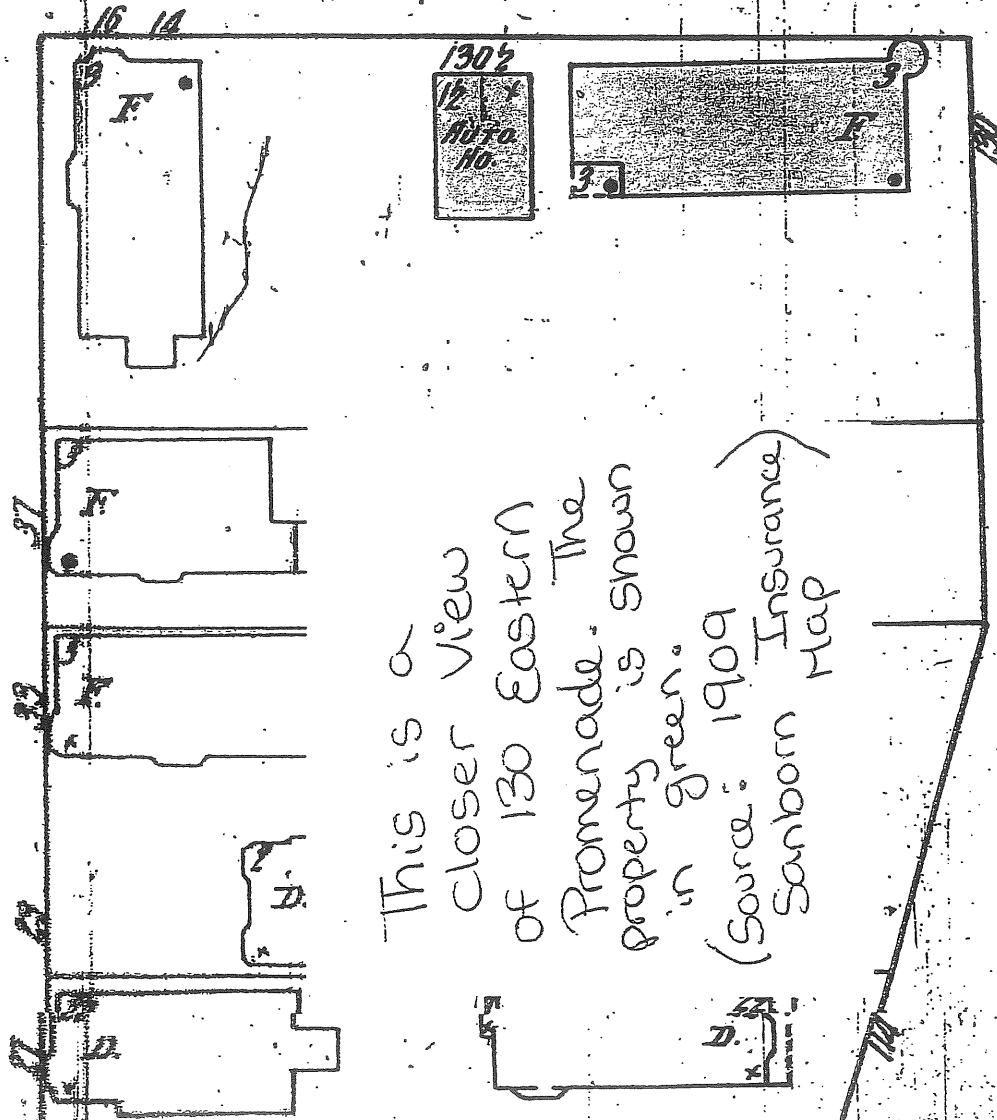 16 14
3
F.
130½
1½ x
Auto
Ho.
3
F
3
F.
37
F.
x
2
D.
x
D.
D.
x
114
This is a
closer view
of 130 Eastern
Promenade. The
property is shown
in green.
(Source: 1909
Sanborn Insurance
Map)